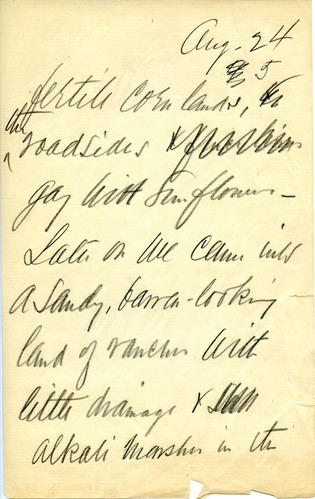 Aug. 24
5
fertile corn lands, the
the
roadsides &
gay with sunflowers –
Later on we came into
a sandy, barren-looking
land of ranches with
little drainage &
alkali marshes in the